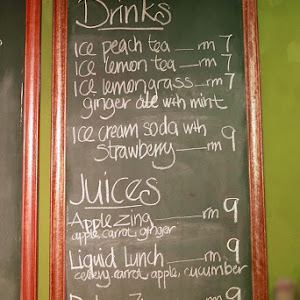 Drinks
Ice peach tea — rm 7
Ice lemon tea — rm 7
Ice lemongrass — rm 7
ginger ale with mint
Ice cream soda with
strawberry — rm 9
Juices
Apple Zing — rm 9
apple, carrot, ginger
Liquid Lunch — rm 9
celery, carrot, apple, cucumber